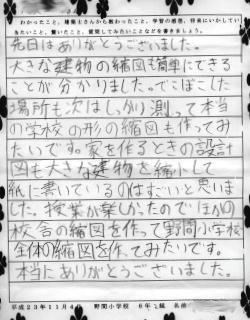 わかったこと、建築士さんから教わったこと、学習の感想、将来にかしてい
きたいこと、驚いたこと、質問してみたいことなどを書きましょう。
先日はありがとうございました。
大きな建物の縮図も簡単にできる
ことが分かりました。でこぼこした
場所も次はしっかり測って本当
の学校の形の縮図も作ってみ
たいです。家を作るときの設計
図も大きな建物を縮小して
紙に書いているのはすごいと思いま
した。授業が楽しかったのでほかの
校舎の縮図を作って野間小学校
全体の縮図を作ってみたいです。
本当にありがとうございました。
平成23年11月4 野間小学校 6年2組 名前